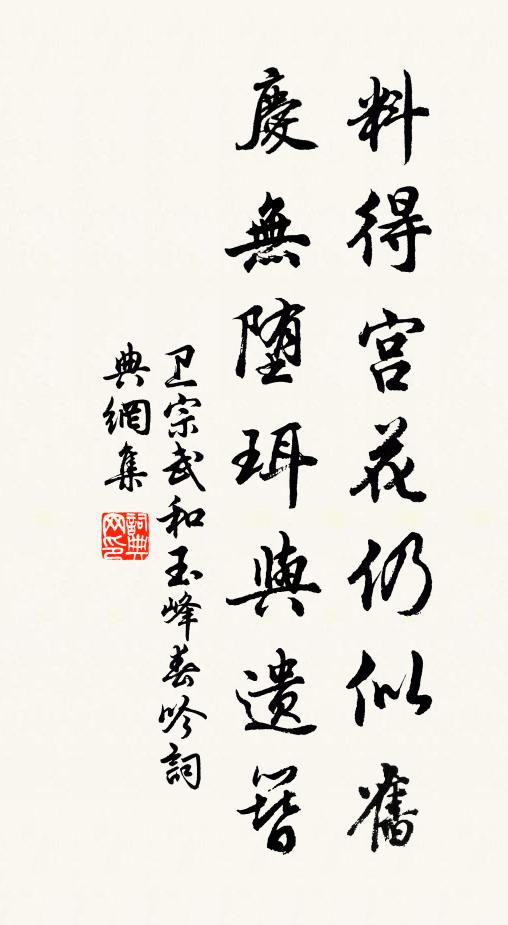 料得宫花仍似舊
慶無堕珥與遺簪
卫宗武和玉峰春吟詞
典網集
詞典
网印